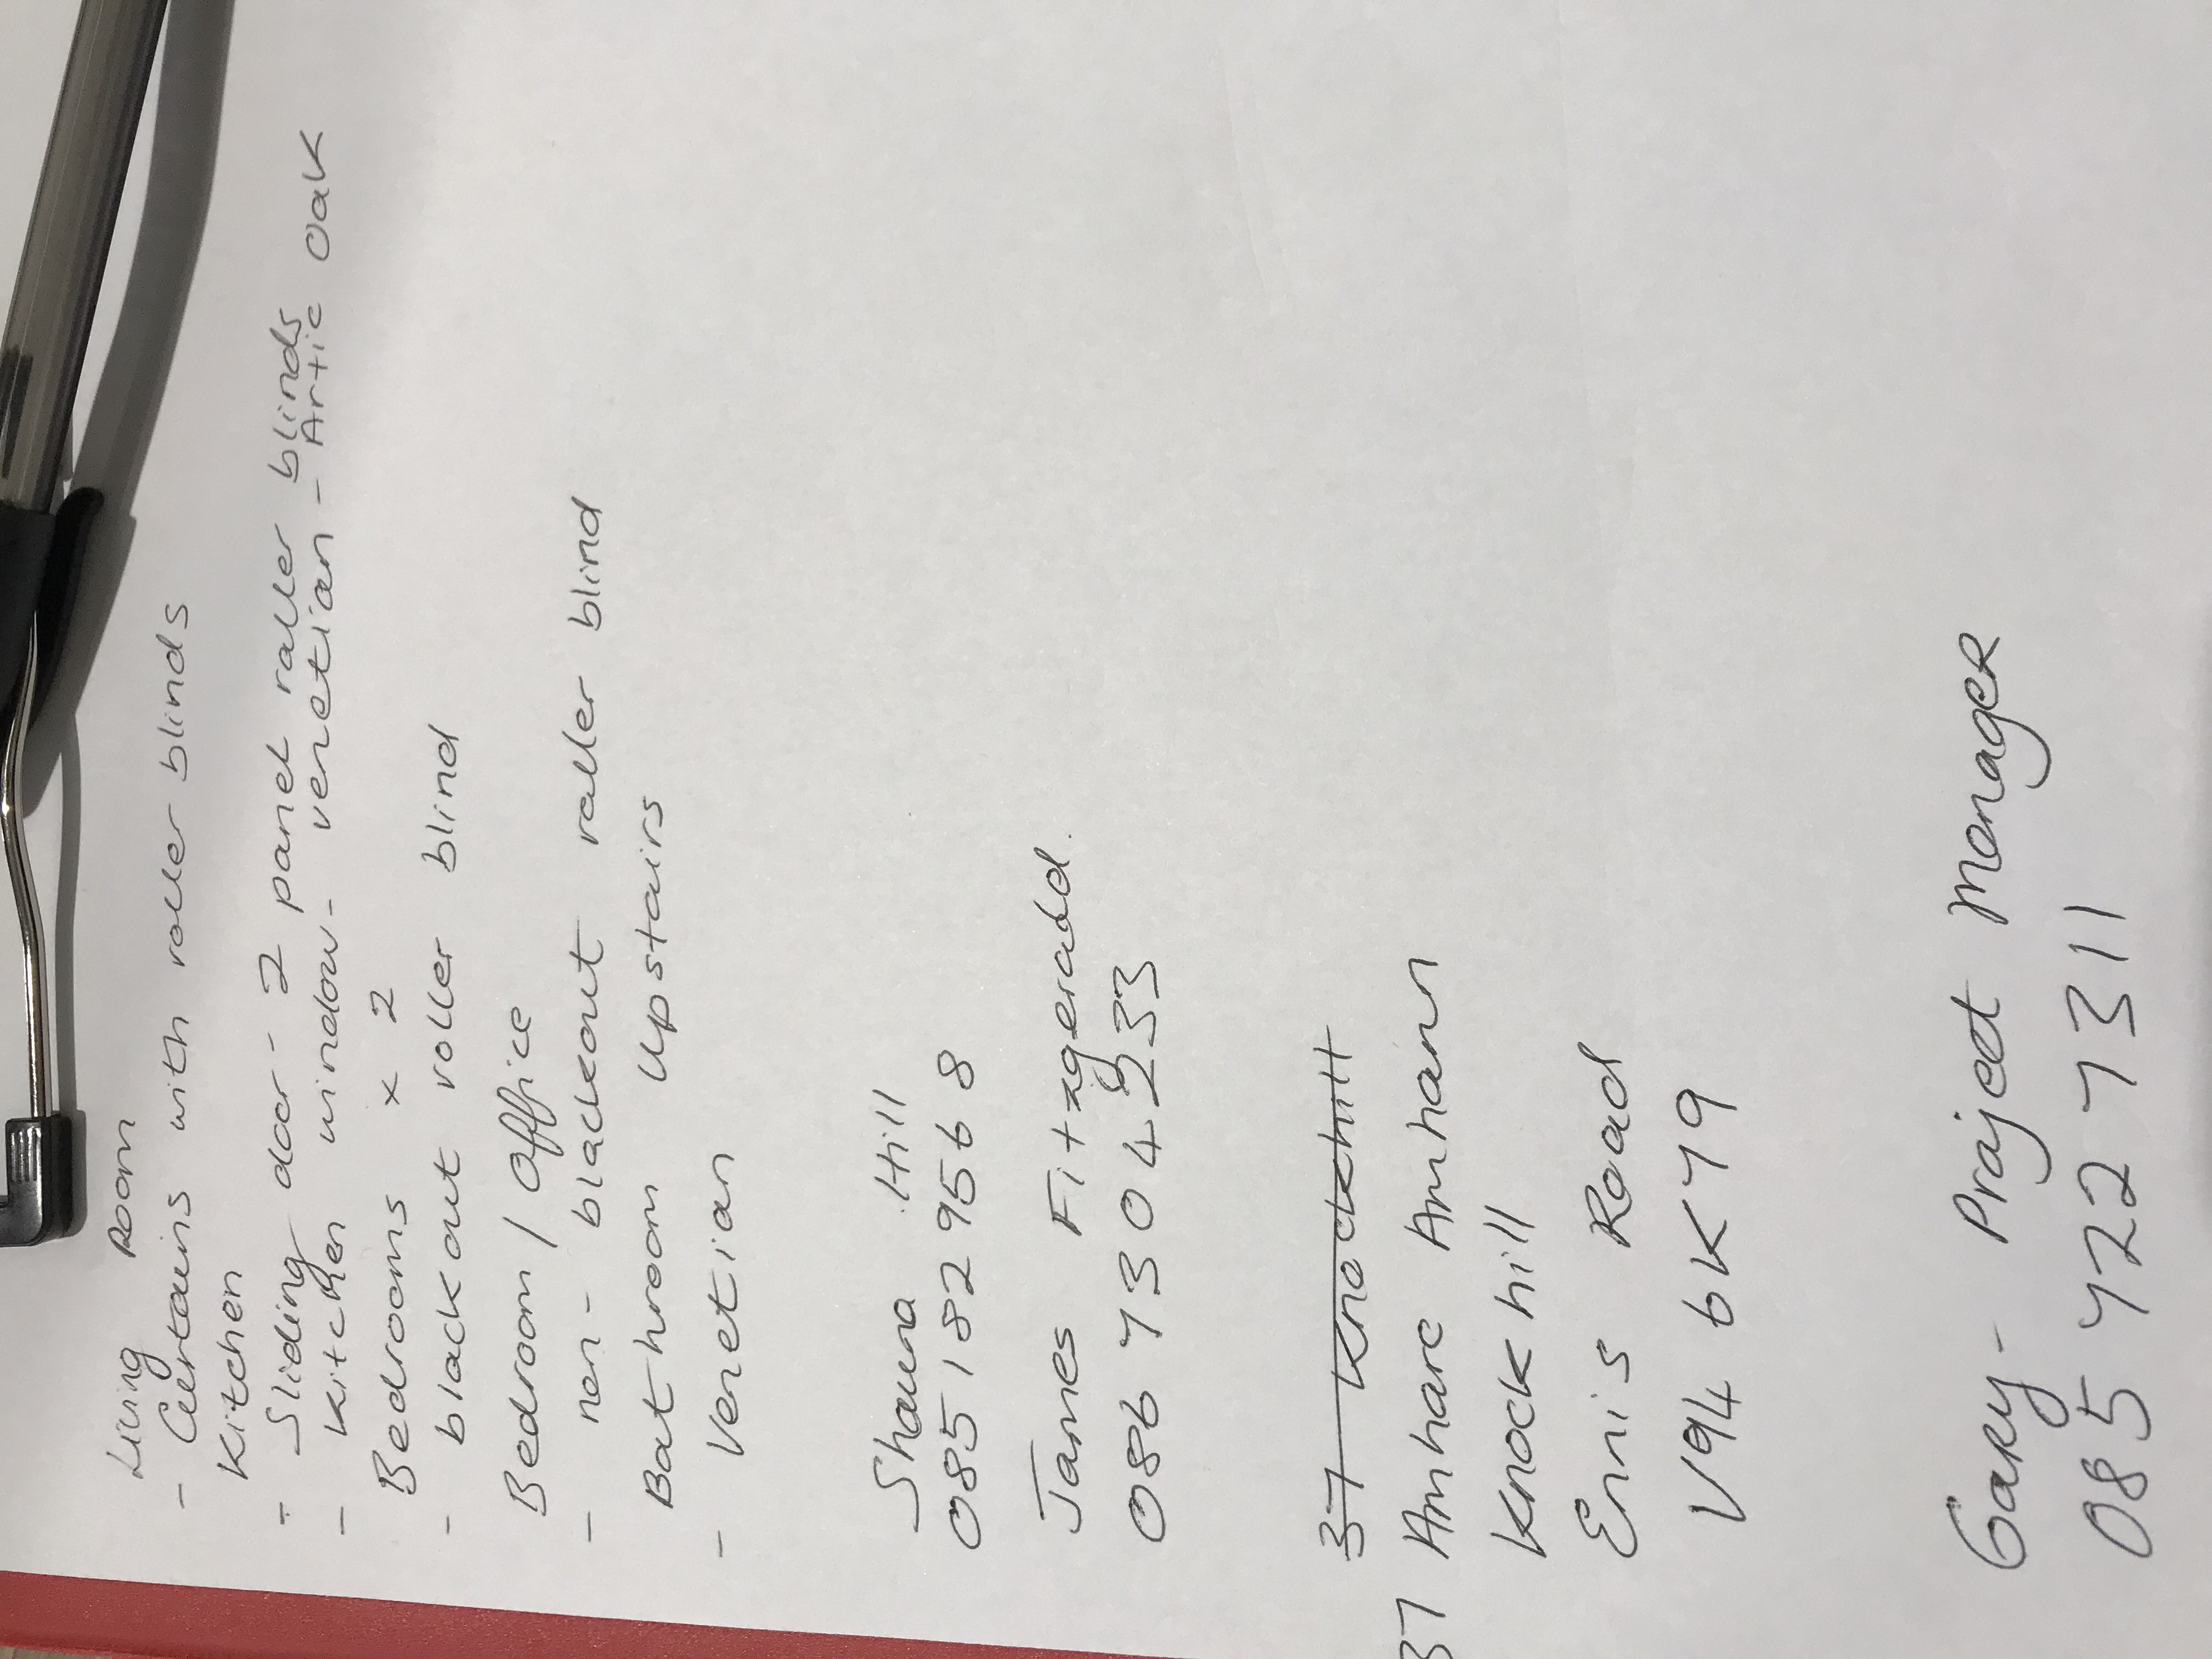 Living Room
- Curtains with roller blinds
Kitchen
- Sliding door - 2 panel roller blinds
- Kitchen window - venetian - Artic Oak
Bedrooms x 2
- blackout roller blind
Bedroom / Office
- non - blackout roller blind
Bathroom Upstairs
- Venetian
Shauna Hill
085 1829568
James Fitzgerald
086 7304
37 Knockhill
37 Amharc Amhain
Knockhill
Ennis Road
V94 6K79
Gary - Project Manager
085 7227311